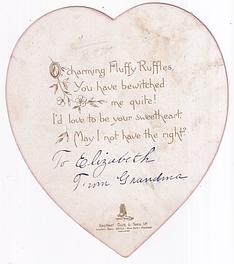 O charming Fluffy Ruffles,
You have bewitched
me quite!
I'd love to be your sweetheart.
May I not have the right?
To Elizabeth
From Grandma